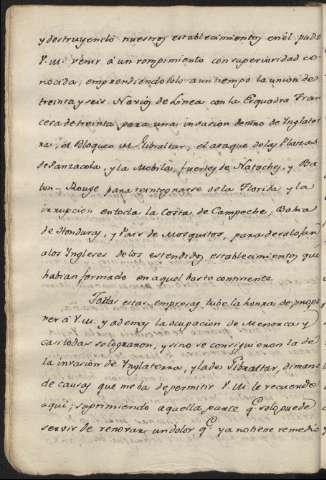 y destruyendo nuestros establecimientos en él, pudo
V. M. venir á un rompimiento con superioridad co-
nocida; emprendiendolo a un tiempo la union de
treinta y seis Navios de Linea con la Esquadra Fran-
cesa de treinta para una invasion dentro de Ynglater-
ra; el Bloqueo de Gibraltar; el ataque de las Plazas
de Panzacola, y la Mobila, fuertes de Natoches, y Ba-
ton-Rouge para reintegrarse de la Florida y la
irrupcion en toda la Costa de Campeche, Bahia
de Honduras, y Pais de Mosquitos, para desalojar
a los Yngleses de los estendidos establecimientos que
habian formado en aquel basto continente.
Todas estas empresas tube la honra de propo-
ner á V. M. y ademas la ocupacion de Menorca y
casi todas se lograron, y si no se consiguieron la de
la invasion de Ynglaterra, y la de Gibraltar, dimanó
de causas que me ha de permitir V. M. le recuerde
aqui; suprimiendo aquella parte q.e solo puede
servir de renovar un dolor q.e ya no tiene remedio